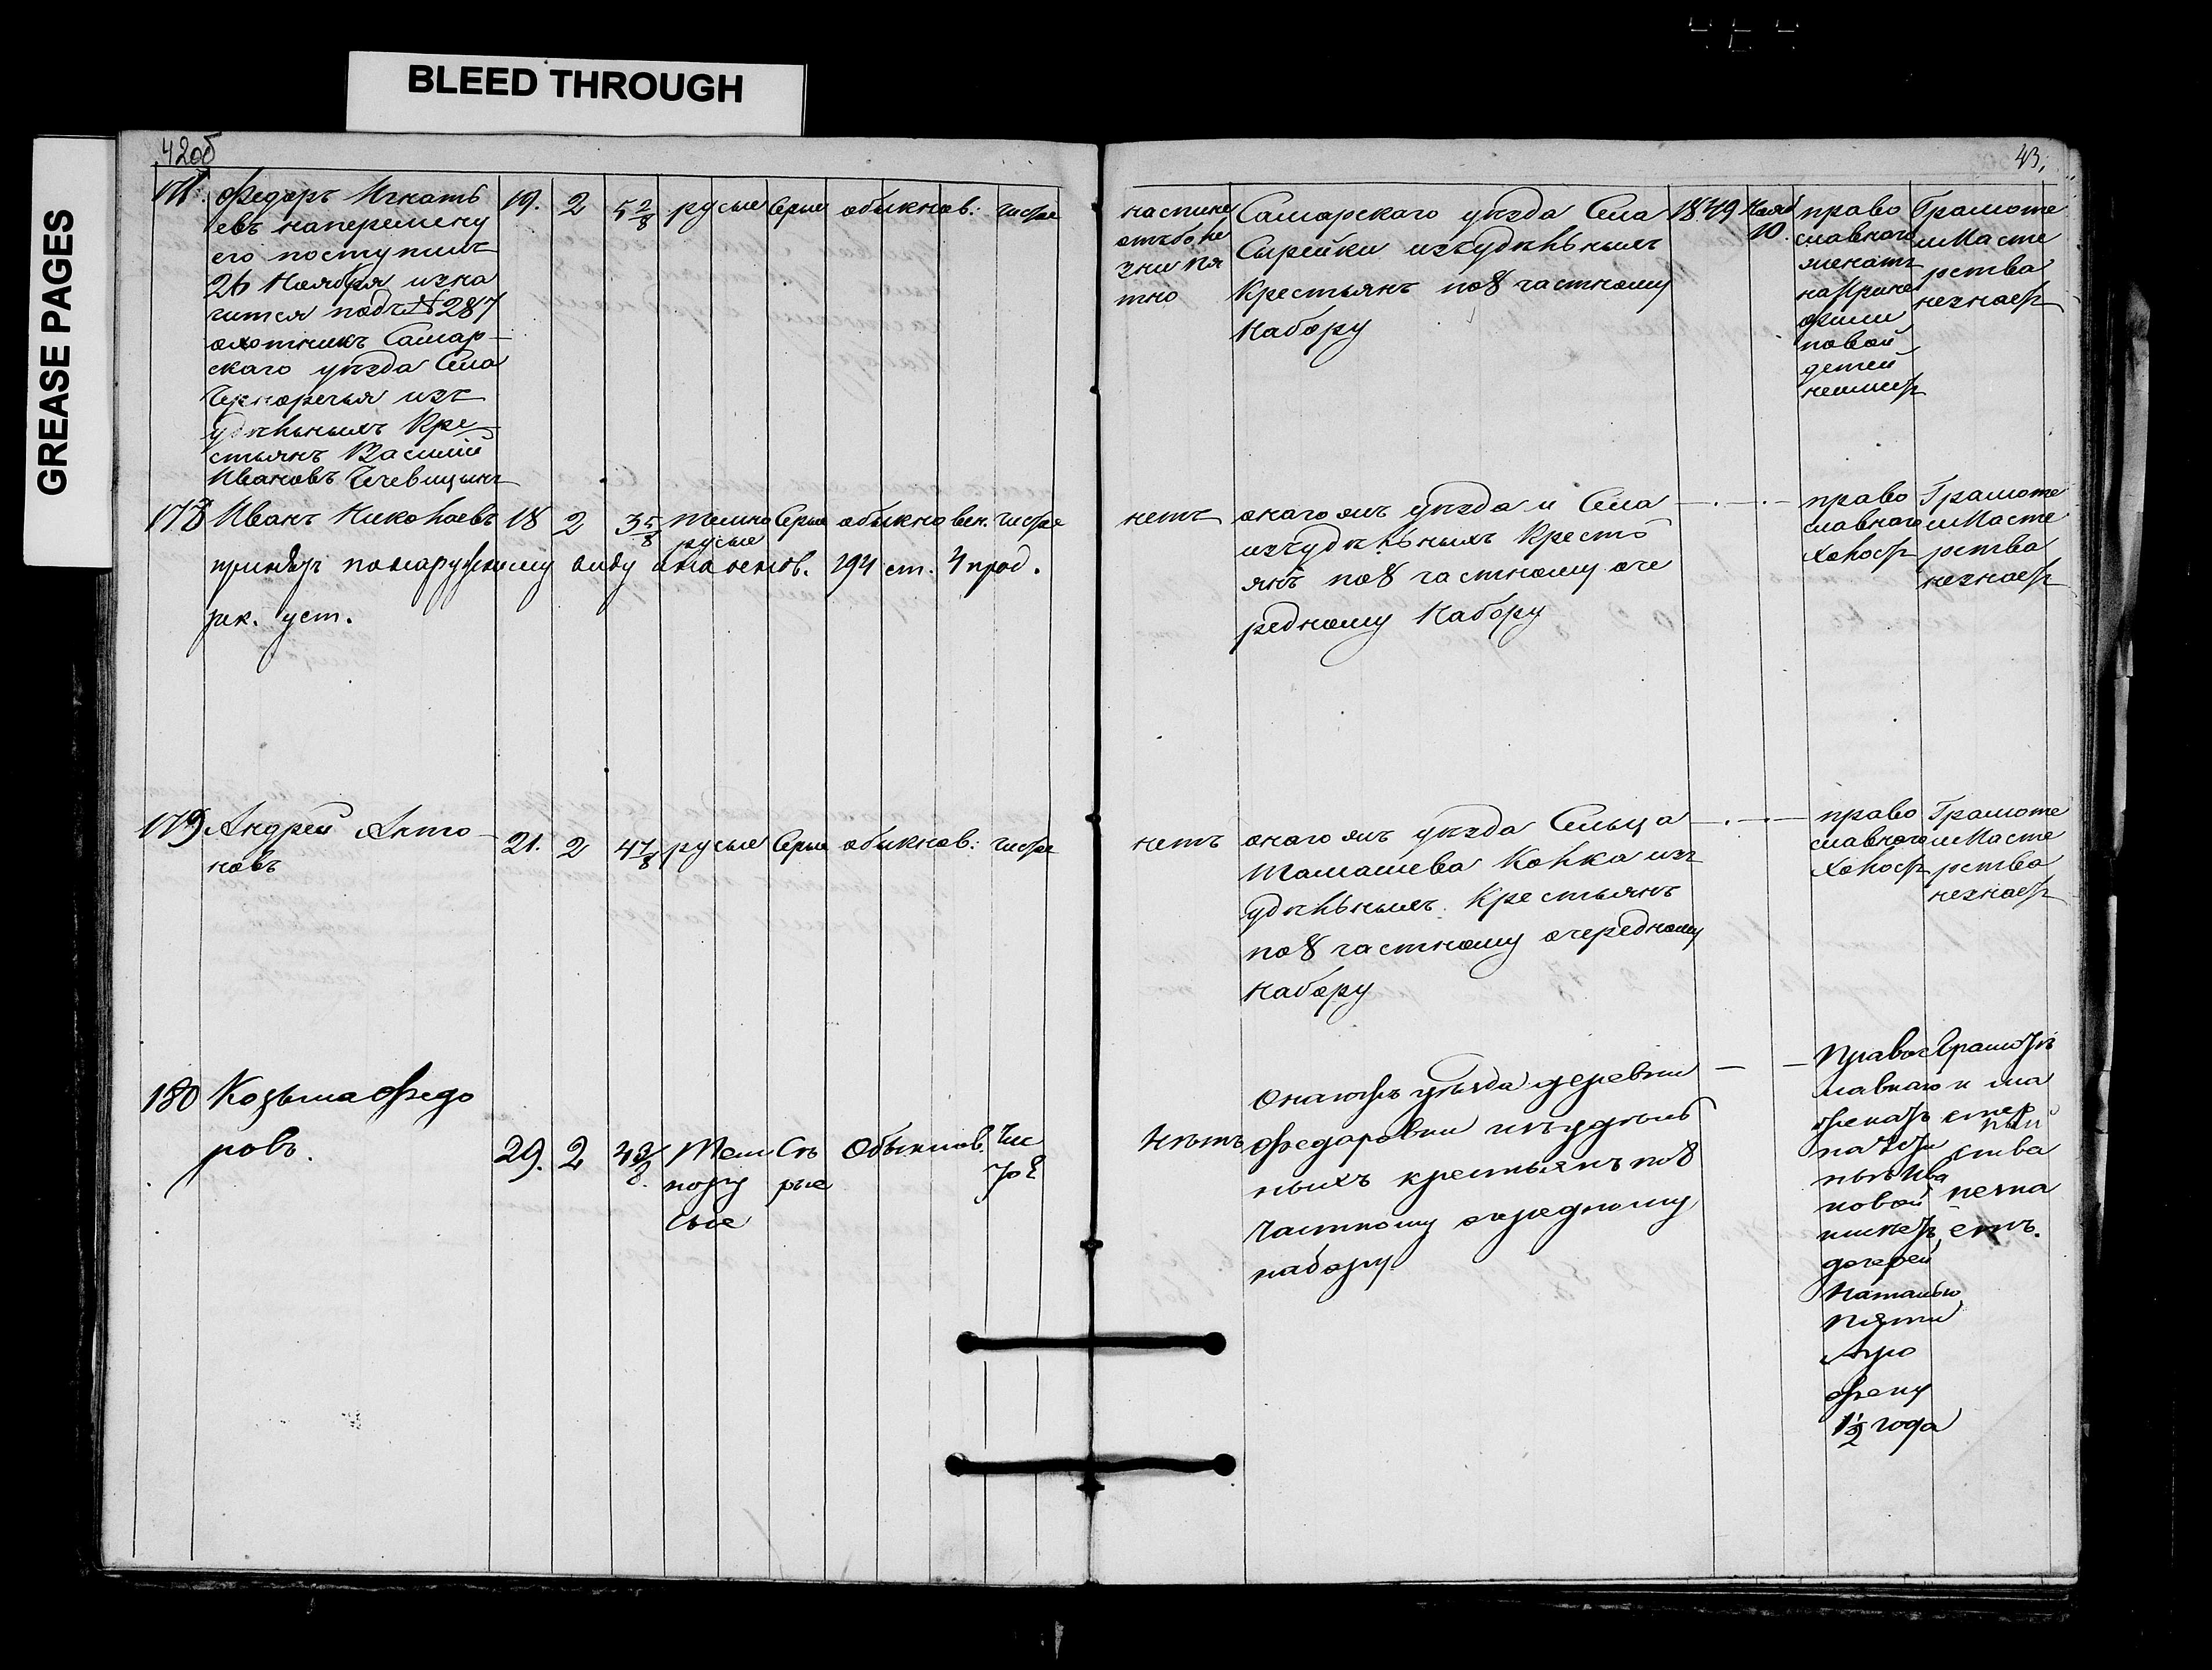 BLEED THROUGH
GREASE PAGES
42об
43.
177. Федоръ Игнать
евъ наперемену
его поступилъ
26 Ноября изна
чится подъ № 287
охотникъ Самар-
скаго уезда Села
Чернаречья изъ
удельныхъ Кре-
стьянъ Василий
Ивановъ Чечевицынъ
19. 2 5 2/8 русые Серые обыкнов: чистое
наспине
отъболе
зни пя
тно
Самарскаго уезда Села
Сырейки изъудельныхъ
Крестьянъ по8 частному
Набору
1849 Нояб
10.
право
славнаго
женатъ
наИрине
Фили
повой
детей
неимеетъ
Грамоте
иМасте
рства
незнаетъ
178 Иванъ Николаевъ 18 2 3 5/8 темно Серые обыкновен. чистое
русые
принятъ понаружному виду на основ. 194 ст. 4 прод.
рек. уст.
нетъ
онагожъ уезда и Села
изъудельныхъ Кресть
янъ по8 частному оче
редному Набору
право
славнаго
Холостъ
Грамоте
иМасте
рства
незнаетъ
179 Андрей Анто-
новъ
21. 2 4 7/8 русые Серые обыкнов: чистое
нетъ
онагожъ уезда Сельца
Томашева Колка изъ
удельныхъ Крестьянъ
по8 частному очередному
набору
право
славнаго
Холостъ
Грамоте
иМасте
рства
незнаетъ
180 Козьма Федо
ровъ.
29. 2 4 3/8 Тем Се Обыкнов. Чис
нору рые тое
сые
Нетъ
Онагожъ уезда деревни
Федоровки изъудель
ныхъ крестьянъ по8
частному очередному
набору
Правос
лавнаго
женатъ
новой
имеетъ
дочерей
Наталью
пяти
Агро
фену
1 1/2 года
Грамоте
и ма
стер
ства
незна
етъ.